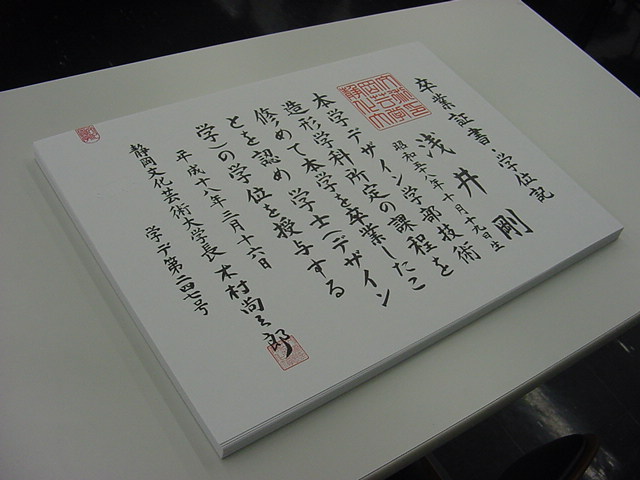 卒業証書・学位記
浅井 剛
昭和五十八年十月十九日生
本学デザイン学部技術
造形学科所定の課程を
修めて本学を卒業したこ
とを認め 学士(デザイン
学)の学位を授与する
平成十八年三月十六日
静岡文化芸術大学長 木村尚三郎
学デ第二四七号